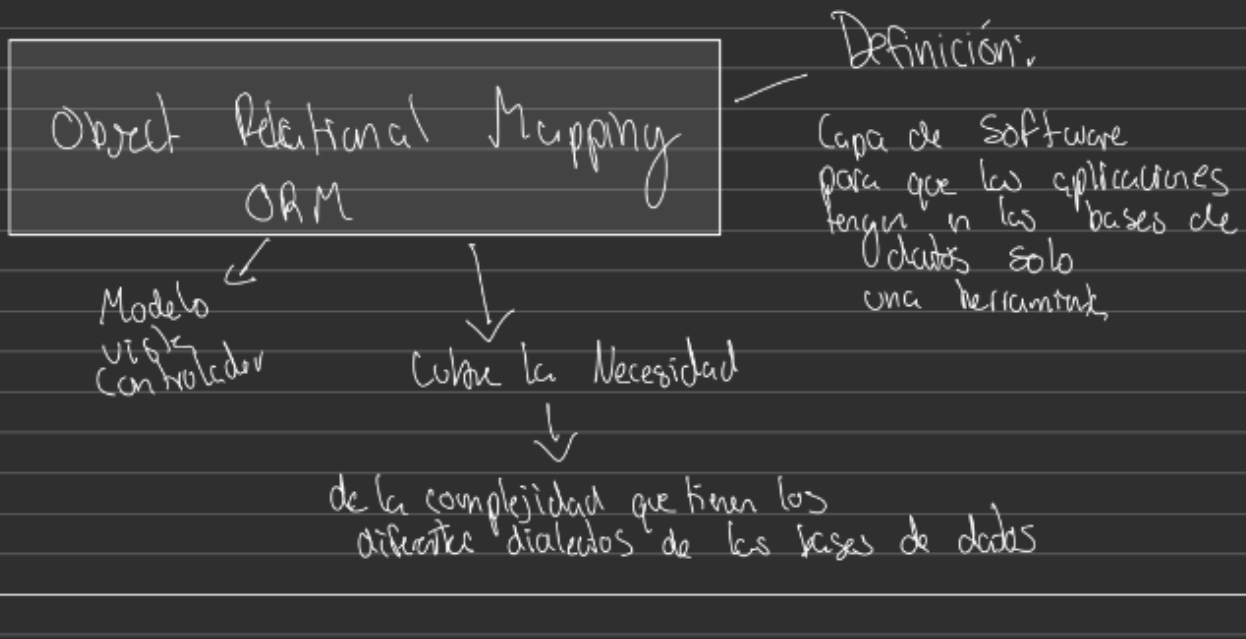 Object Relational Mapping
ORM
Definición:
Capa de Software
para que las aplicaciones
tengan n las bases de
datos solo
una herramienta
Modelo
vista
Controlador
Cubre la Necesidad
de la complejidad que tienen los
diferentes dialectos de las bases de datos